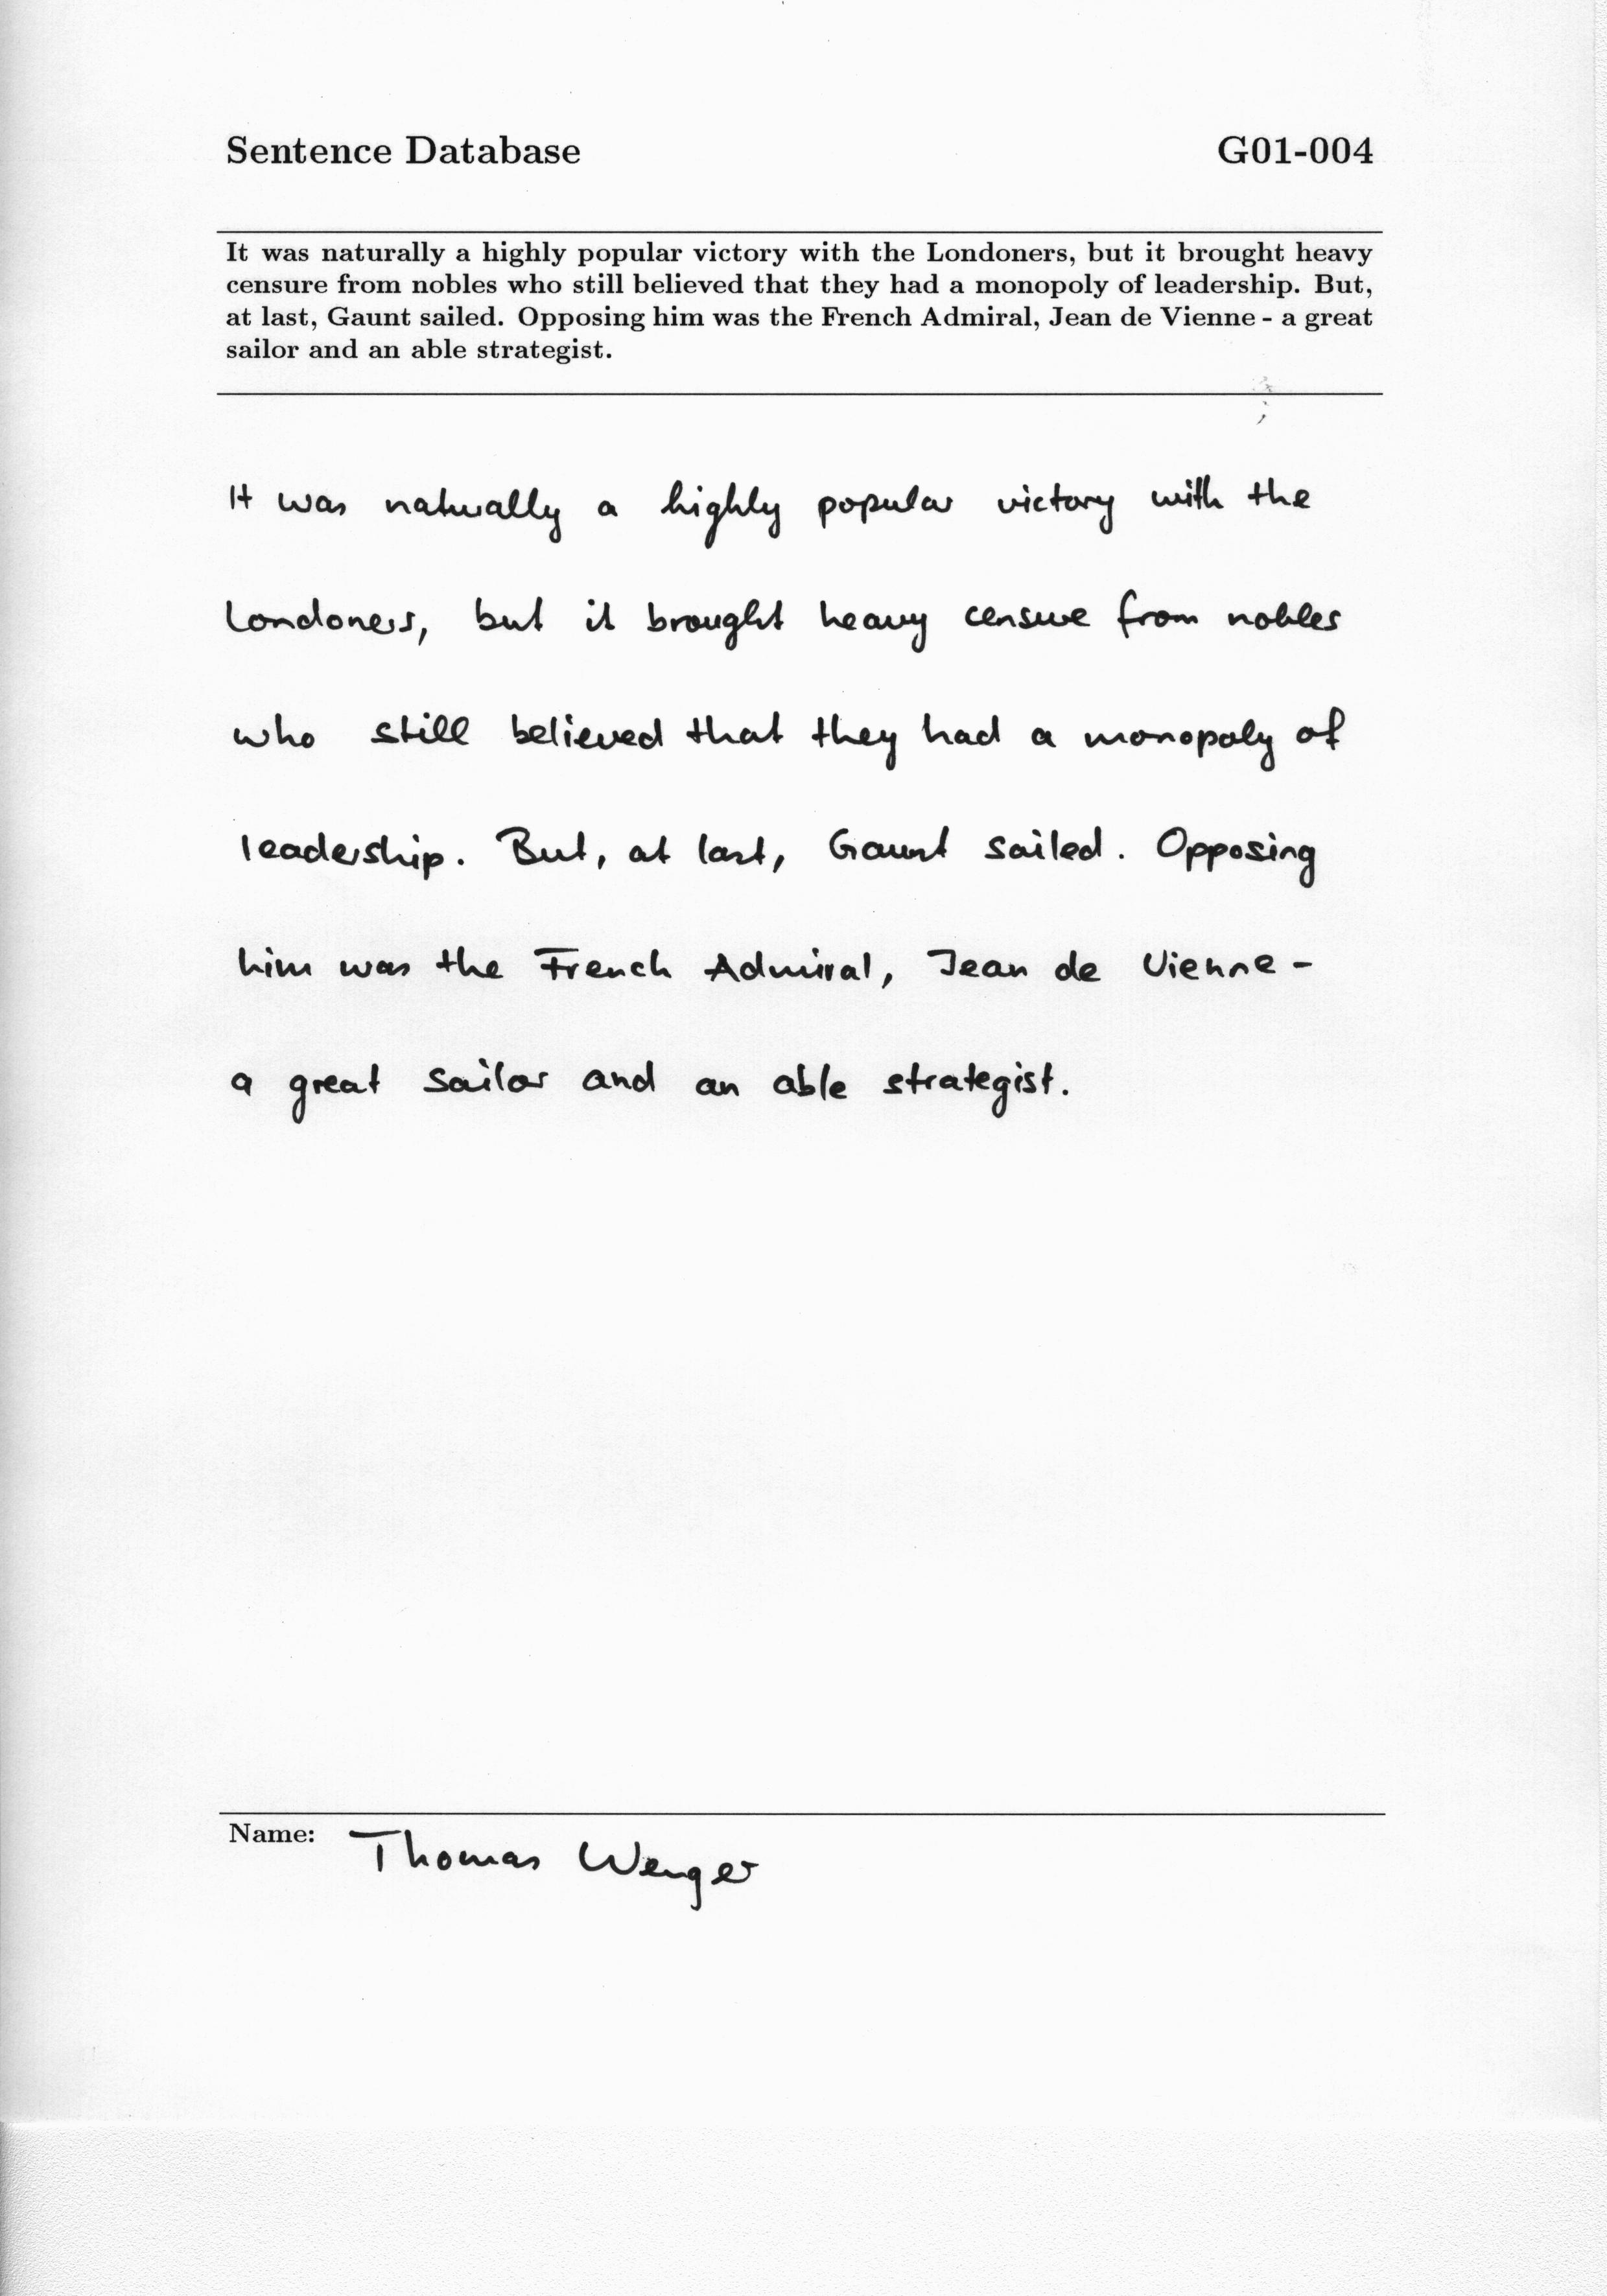 Sentence Database G01-004
It was naturally a highly popular victory with the Londoners, but it brought heavy
censure from nobles who still believed that they had a monopoly of leadership. But,
at last, Gaunt sailed. Opposing him was the French Admiral, Jean de Vienne - a great
sailor and an able strategist.
It was naturally a highly popular victory with the
Londoners, but it brought heavy censure from nobles
who still believed that they had a monopoly of
leadership. But, at last, Gaunt sailed. Opposing
him was the French Admiral, Jean de Vienne -
a great sailor and an able strategist.
Name: Thomas Wenger